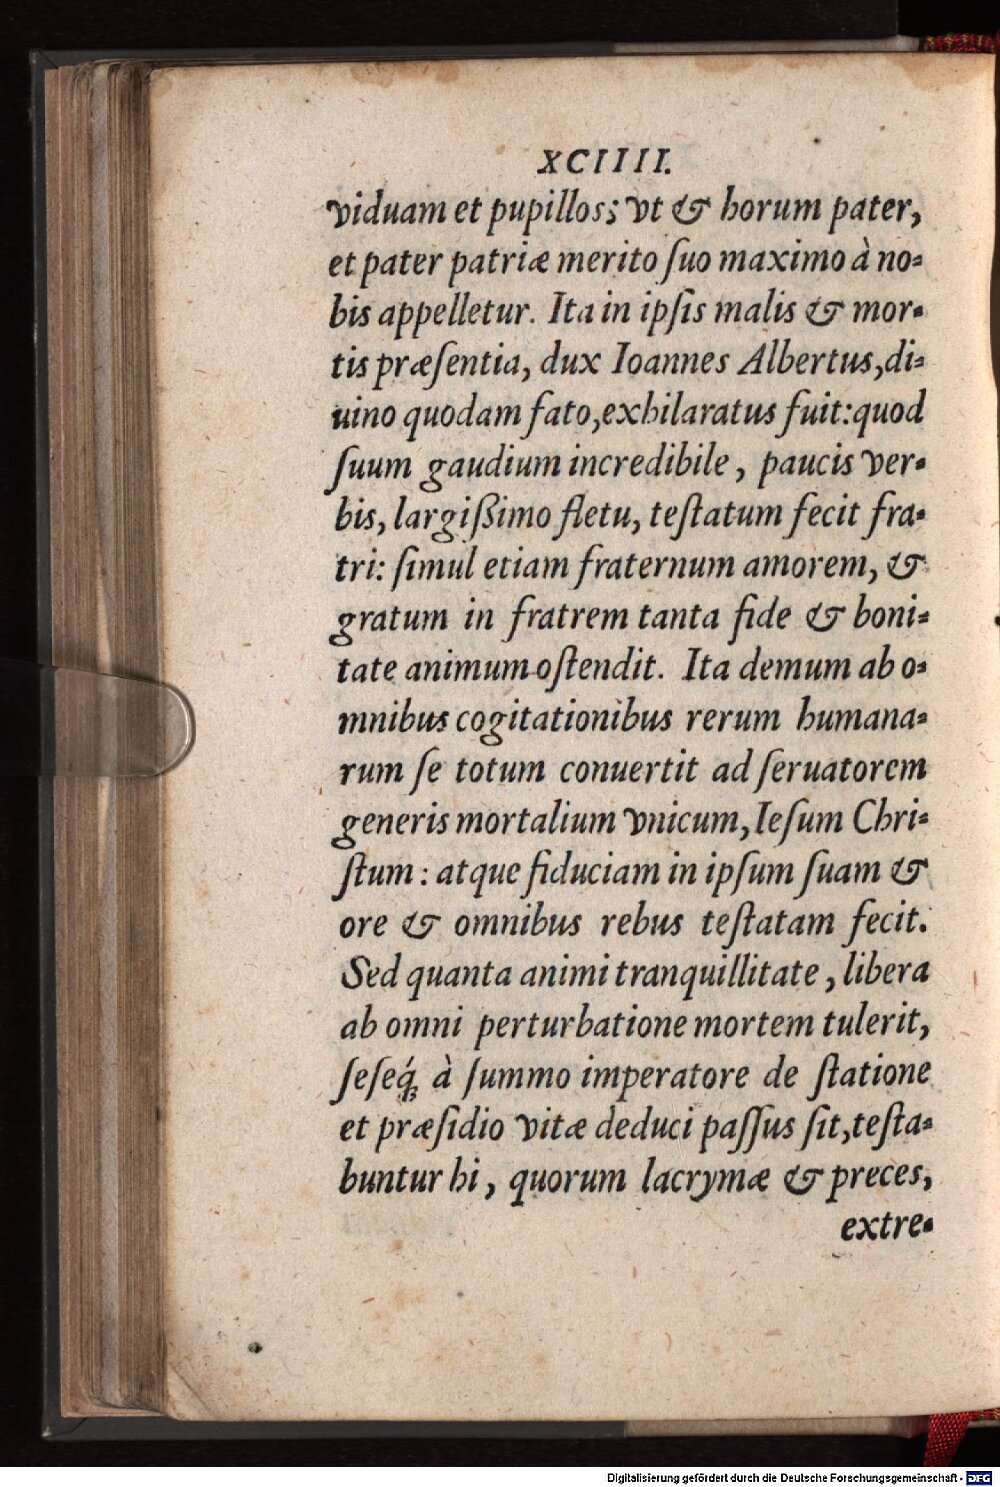 XCIIII.
viduam et pupillos; vt & horum pater,
et pater patriæ merito ſuo maximo à no-
bis appelletur. Ita in ipſis malis & mor-
tis præſentia, dux Ioannes Albertus, di-
uino quodam fato, exhilaratus fuit: quod
ſuum gaudium incredibile, paucis ver-
bis, largiſſimo fletu, teſtatum fecit fra-
tri: ſimul etiam fraternum amorem, &
gratum in fratrem tanta fide & boni-
tate animum oſtendit. Ita demum ab o-
mnibus cogitationibus rerum humana-
rum ſe totum conuertit ad ſeruatorem
generis mortalium vnicum, Ieſum Chri-
ſtum: atque fiduciam in ipſum ſuam &
ore & omnibus rebus teſtatam fecit.
Sed quanta animi tranquillitate, libera
ab omni perturbatione mortem tulerit,
ſeſeq́; à ſummo imperatore de ſtatione
et præſidio vitæ deduci paſſus ſit, teſta-
buntur hi, quorum lacrymæ & preces,
extre-
Digitalisierung gefördert durch die Deutsche Forschungsgemeinschaft - DFG